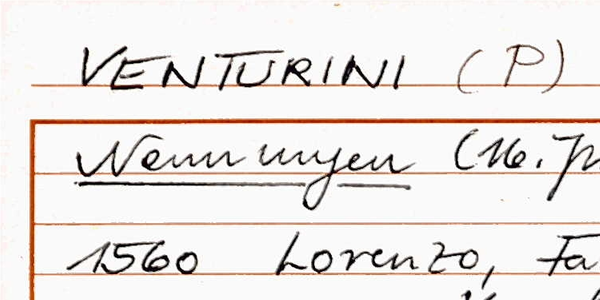 VENTURINI (P)
Nennungen (16. J
1560 Lorenzo, Fa